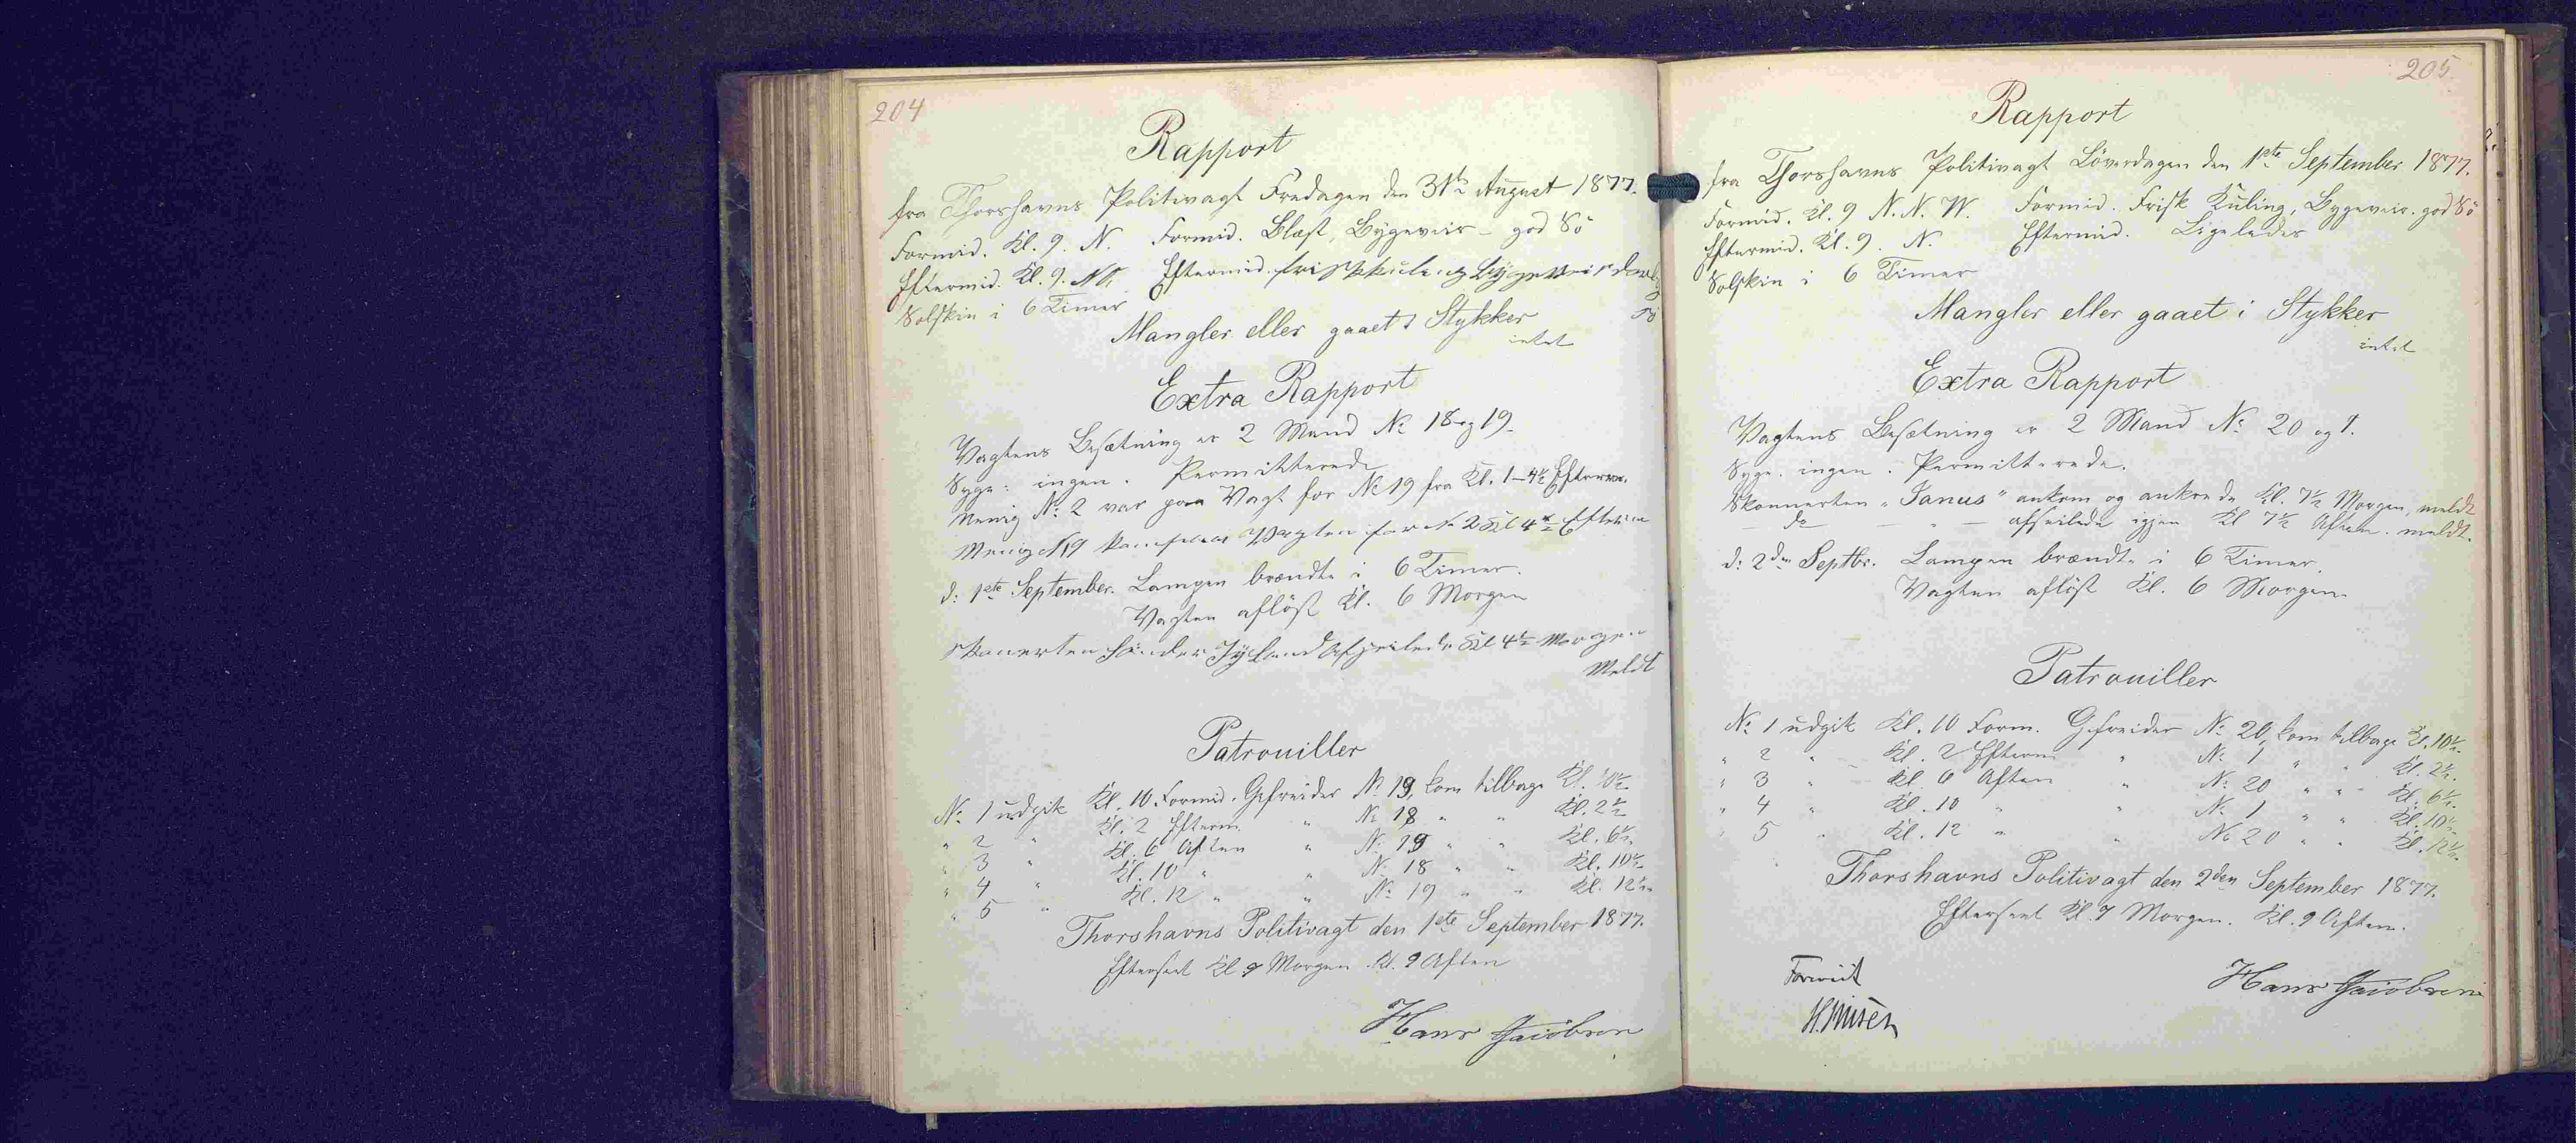 204
Rapport
fra Thorshavns Politivagt Fredagen den 31te August 1877.
Formid. Kl. 9. N. Formid. Blæst, Bygeveir - god Sö
Eftermid. Kl. 9. Eftermid. frisk kuling bygeveir daarlig
Sö
Solskin i 6 Timer
Mangler eller gaaet i Stykker
intet
Extra Rapport
Vagtens Besætning er 2 Mand No 18 og 19.
Syge: ingen. Permitterede
Menig No 2 var paa Vagt for No 19 fra Kl. 1-4½ Efterm.
Menig N 19 kom paa Vagten for No 2 Kl 4½ Efterm
d: 1ste September. Lampen brændte i 6 Timer.
Vagten aflöst Kl. 6 Morgen
Skonerten Sönder Jylland Afseilede Kl 4½ Morgen
Meldt
Patrouiller
No 1 udgik Kl. 10 Formid. Gefreider No 19, kom tilbage Kl. 10½
" 2 " Kl. 2 Efterm. " No 18 " " Kl. 2½
" 3 " Kl. 6 Aften " No 19 " " Kl. 6½
" 4 " Kl. 10 " " No 18 " " Kl. 10½
" 5 " Kl. 12 " " No 19 " " Kl. 12½
Thorshavns Politivagt den 1ste September 1877.
Efterseet Kl 7 Morgen Kl. 9 Aften
Hans Jacobsen
205
Rapport
fra Thorshavns Politivagt Löverdagen den 1ste September 1877.
Formid. Kl. 9 N. N. W. Formid. Frisk Kuling, Bygeveir. god Sö
Eftermid. Kl. 9. N. Eftermid. Ligeledes
Solskin i 6 Timer
Mangler eller gaaet i Stykker
intet
Extra Rapport
Vagtens Besætning er 2 Mand No 20 og 1.
Syge. ingen. Permitterede.
Skonnerten "Janus" ankom og ankrede Kl. 7½ Morgen, meldt
do - " - afseilede igjen Kl 7½ Aften. meldt.
d: 2den Septbr. Lampen brændte i 6 Timer.
Vagten aflöst Kl. 6 Morgen.
Patrouiller
No 1 udgik Kl. 10 Form. Gefreider No 20, kom tilbage Kl. 10½.
" 2 " Kl. 2 Efterm " No 1 " " Kl. 2½.
" 3 " Kl 6 Aften " No 20 " " Kl. 6½.
" 4 " Kl. 10 " " No 1 " " Kl. 10½.
" 5 " Kl. 12 " " No 20 " " Kl. 12½.
Thorshavns Politivagt den 2den September 1877.
Efterseet Kl. 7 Morgen. Kl. 9 Aften.
Hans Jacobsen